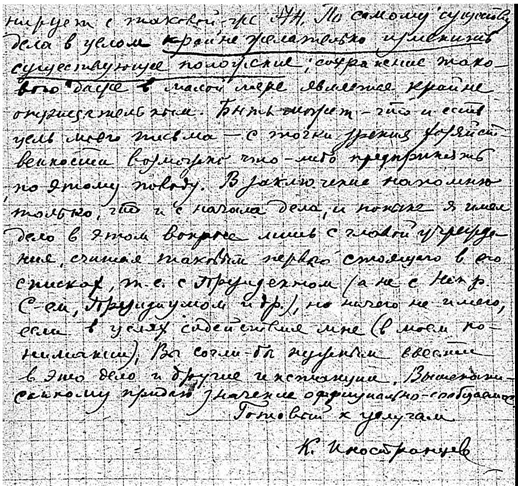 нирует с таковой-же А74. По самому существу
дела в целом крайне желательно изменить
существующее положение, сохранение тако-
вого даже в малой мере является крайне
отрицательным. Быть может – это и есть
цель моего письма – с точки зрения
возможно что-либо предпринять
по этому поводу. В заключение напомню
только, что и с начала дела, и поныне я имел
дело в этом вопросе лишь с главой учрежде-
ния, считая таковым первого стоящего в его
списках, т.е. с Президентом (а не с Непр.
С-ем, Президиумом и др.), но ничего не имею,
если в целях содействия мне (в моем по-
нимании), Вы сочли-бы нужным ввести
в это дело и другие инстанции. Вышенапи-
санному придаю значение официально-сообщаемого
Готовый к услугам
К. Иностранцев